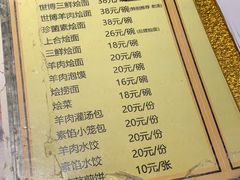 世博三鲜烩面 38元/碗
世博羊肉烩面 38元/碗(特别推荐 套送)
珍菌素烩面 38元/碗
上合烩面 26元/碗
三鲜烩面 18元/碗
羊肉烩面 20元/碗
羊肉泡馍 20元/碗
烩捞面 16元/碗
烩菜 18元/碗
羊肉灌汤包 20元/份
素馅小笼包 20元/份
羊肉水饺 20元/份
素馅水饺 20元/份
10元/张